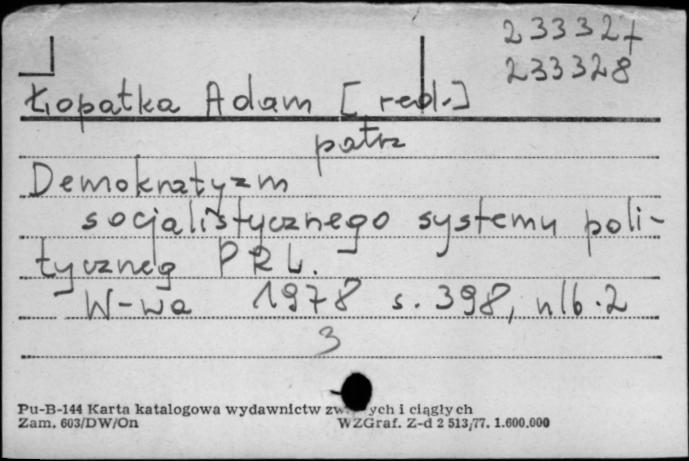 233327
233328
Łopatka Adam [red.]
patrz
Demokratyzm
socjalistycznego systemu poli-
tyczneg PRL.
W-wa 1978 s. 398, nlb. 2
3
Pu-B-144 Karta katalogowa wydawnictw i ciągłych
Zam. 603/DW/On WZGraf. Z-d 2 513/77. 1.600.000